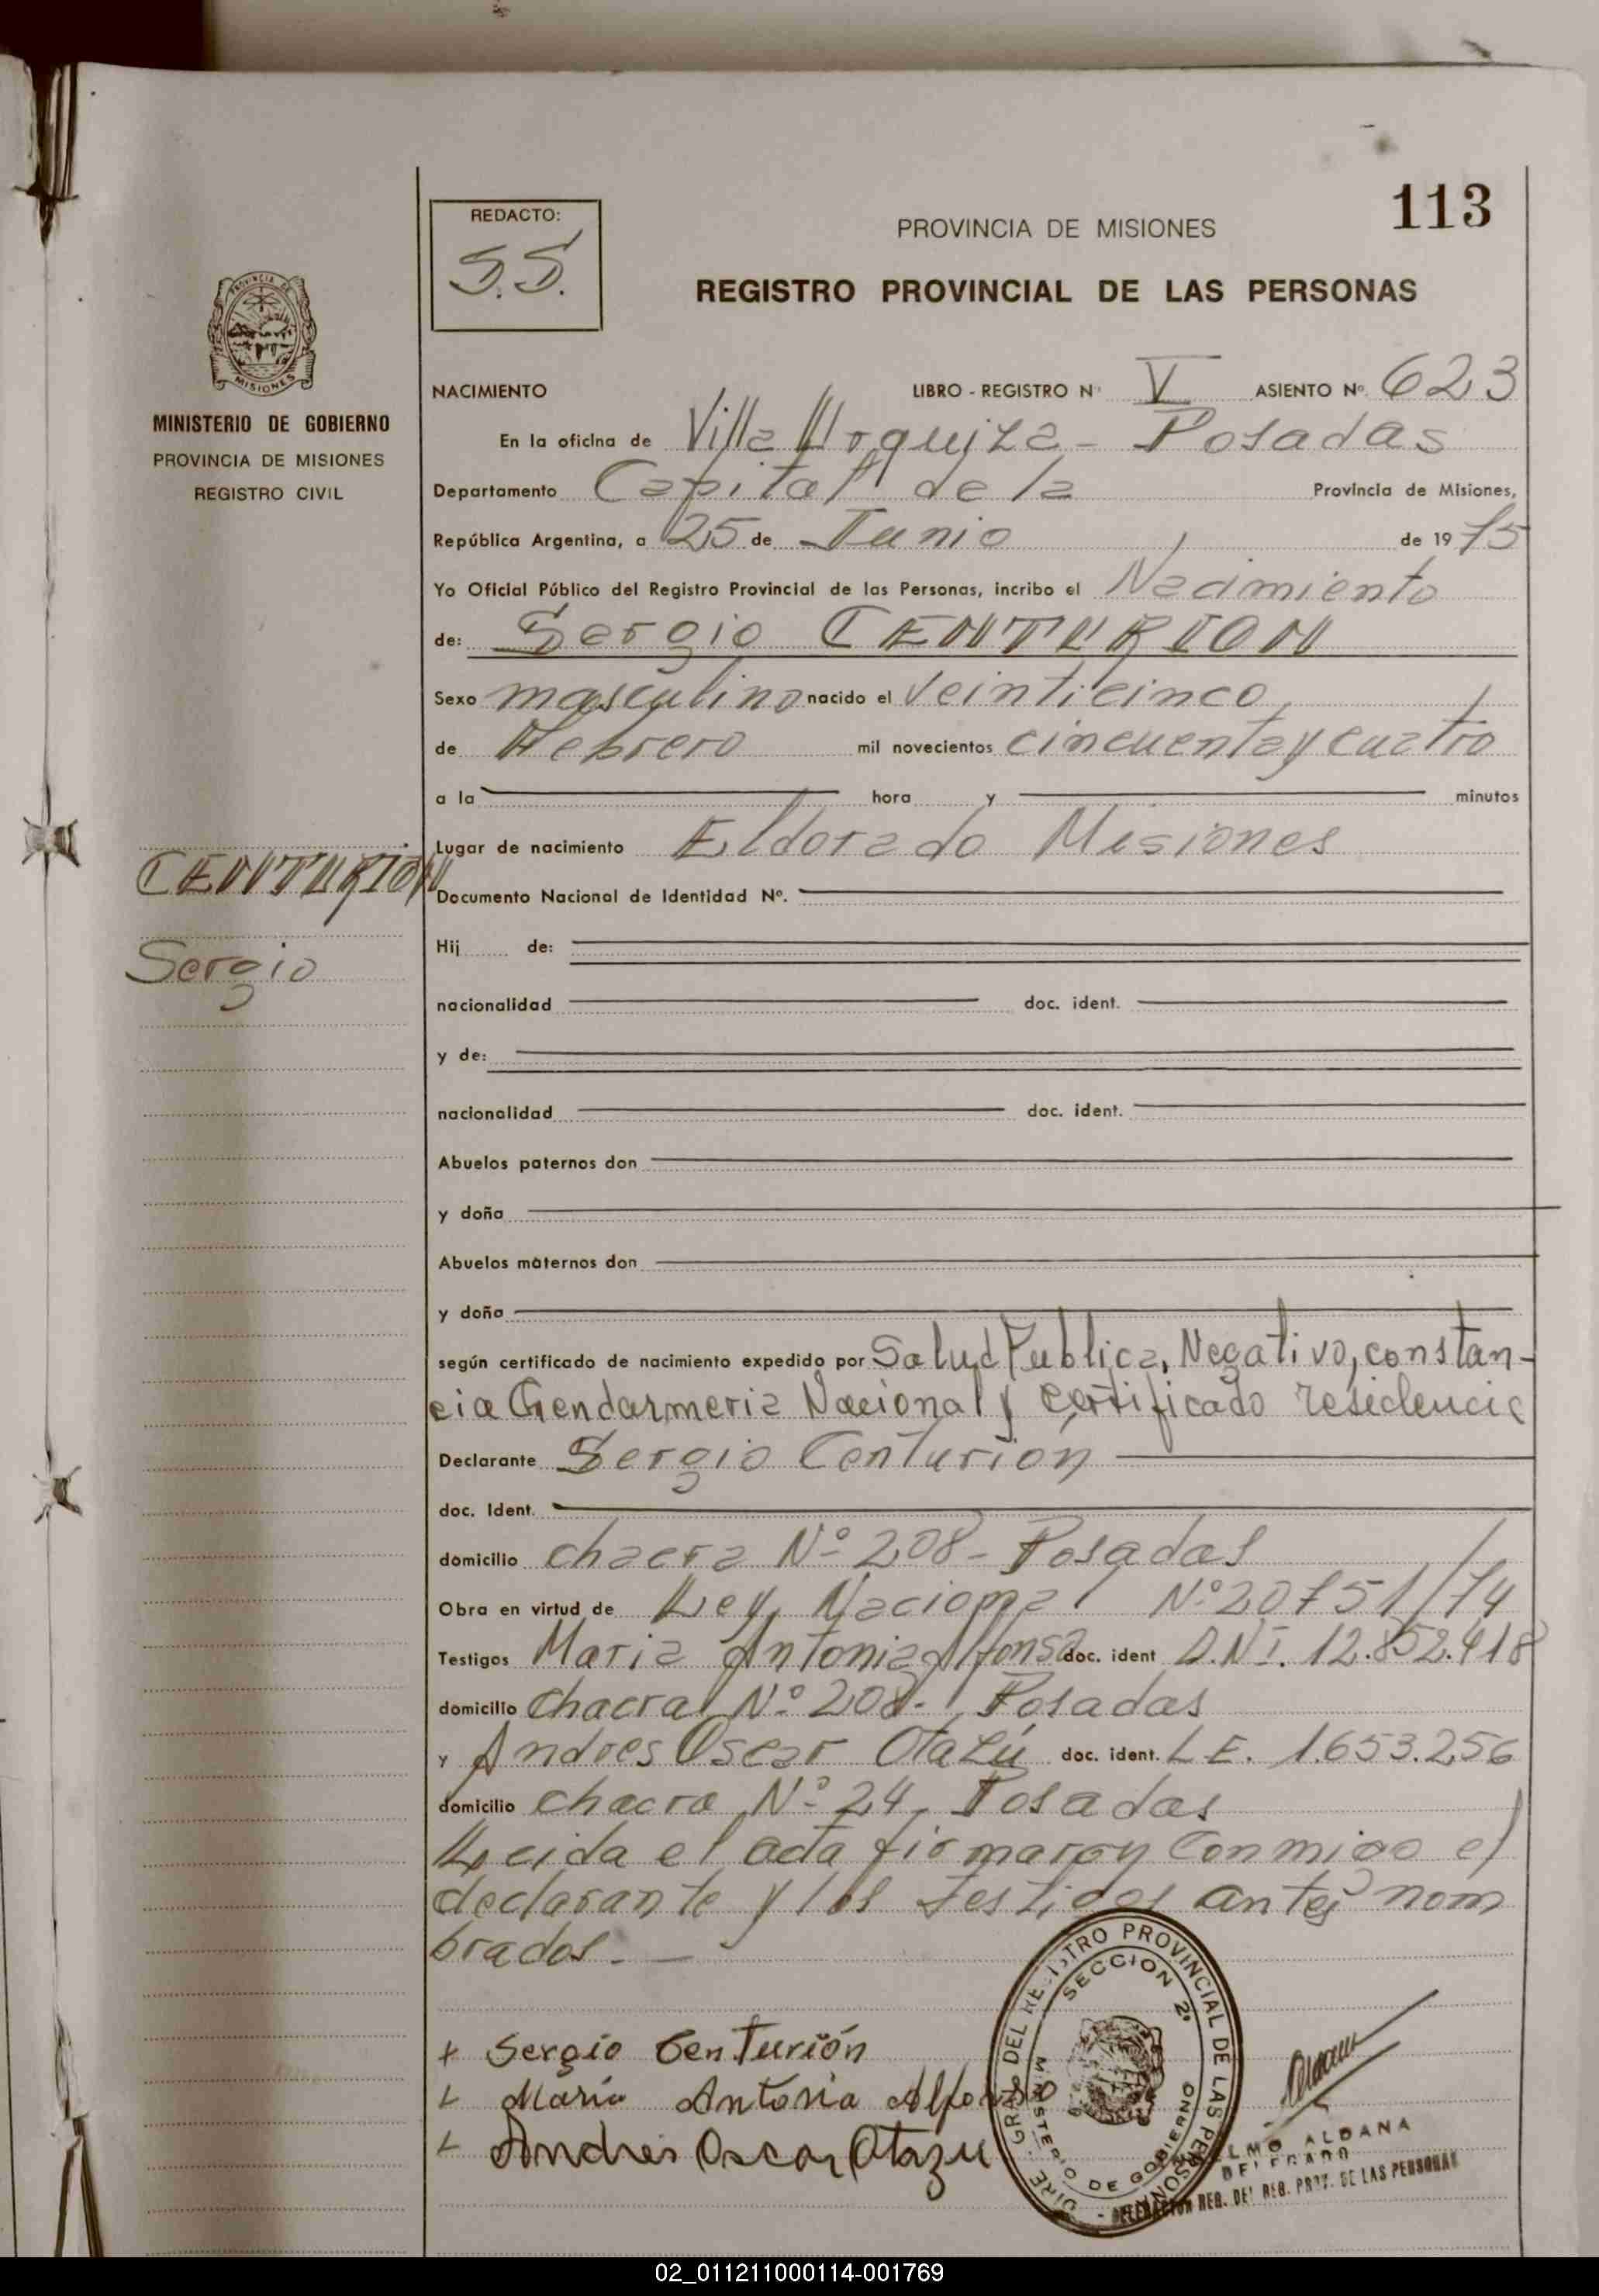 113
REDACTO:
S.S.
PROVINCIA DE MISIONES
REGISTRO PROVINCIAL DE LAS PERSONAS
MISIONES
MINISTERIO DE GOBIERNO
PROVINCIA DE MISIONES
REGISTRO CIVIL
NACIMIENTO LIBRO - REGISTRO Nº V ASIENTO Nº 623
En la oficina de Villa Urquiza - Posadas
Departamento Capital de la Provincia de Misiones,
República Argentina, a 25 de Junio de 1975
Yo Oficial Público del Registro Provincial de las Personas, incribo el Nacimiento
de: Sergio CENTURION
Sexo masculino nacido el veinticinco
de Febrero mil novecientos cincuenta y cuatro
a la hora y minutos
Lugar de nacimiento Eldorado Misiones
CENTURION
Documento Nacional de Identidad Nº.
Hij de:
Sergio
nacionalidad doc. ident.
y de:
nacionalidad doc. ident.
Abuelos paternos don
y doña
Abuelos maternos don
y doña
según certificado de nacimiento expedido por Salud Publica, Negativo, constan-
cia Gendarmeria Nacional y certificado residencia
Declarante Sergio Centurión
doc. Ident.
domicilio chacra Nº 208 - Posadas
Obra en virtud de Ley Nacional Nº 20751/74
Testigos Maria Antonia Alfonso doc. ident D.N.I. 12.852.418
domicilio chacra Nº 208 - Posadas
y Andres Oscar Otazú doc. ident. L.E. 1.653.256
domicilio chacra Nº 24, Posadas
Leida el acta firmaron conmigo el
declarante y los testigos antes nom
brados. -
+ Sergio Centurión
+ María Antonia Alfonso
+ Andres Oscar Otazu
DIRE . GRAL DEL REGISTRO PROVINCIAL DE LAS PERSONAS
SECCION 2º
MINISTERIO DE GOBIERNO
ELMO ALDANA
DELEGADO
DELEGACION REG. DEL REG. PROV. DE LAS PERSONAS
02_011211000114-001769